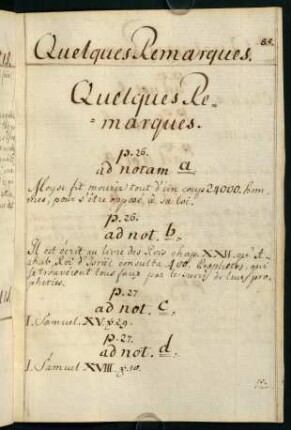 Quelques Remarques.
Quelques Re-
=marques.
p. 26.
ad notam a
Moyse fit mourir tout d'un coup 24000. hom-
mes, pour s'être opposé à sa loi.
p. 26.
ad not. b.
Il est écrit au livre des Rois chap. XXII. qu'A-
chab Roi d'Israel consulta 400. Prophetes, qui
se trouvèrent tous faux par le succès de leurs pro-
pheties.
p. 27.
ad not. c.
I. Samuel XV. v. 29.
p. 27.
ad not. d.
I. Samuel XVIII. v. 10.